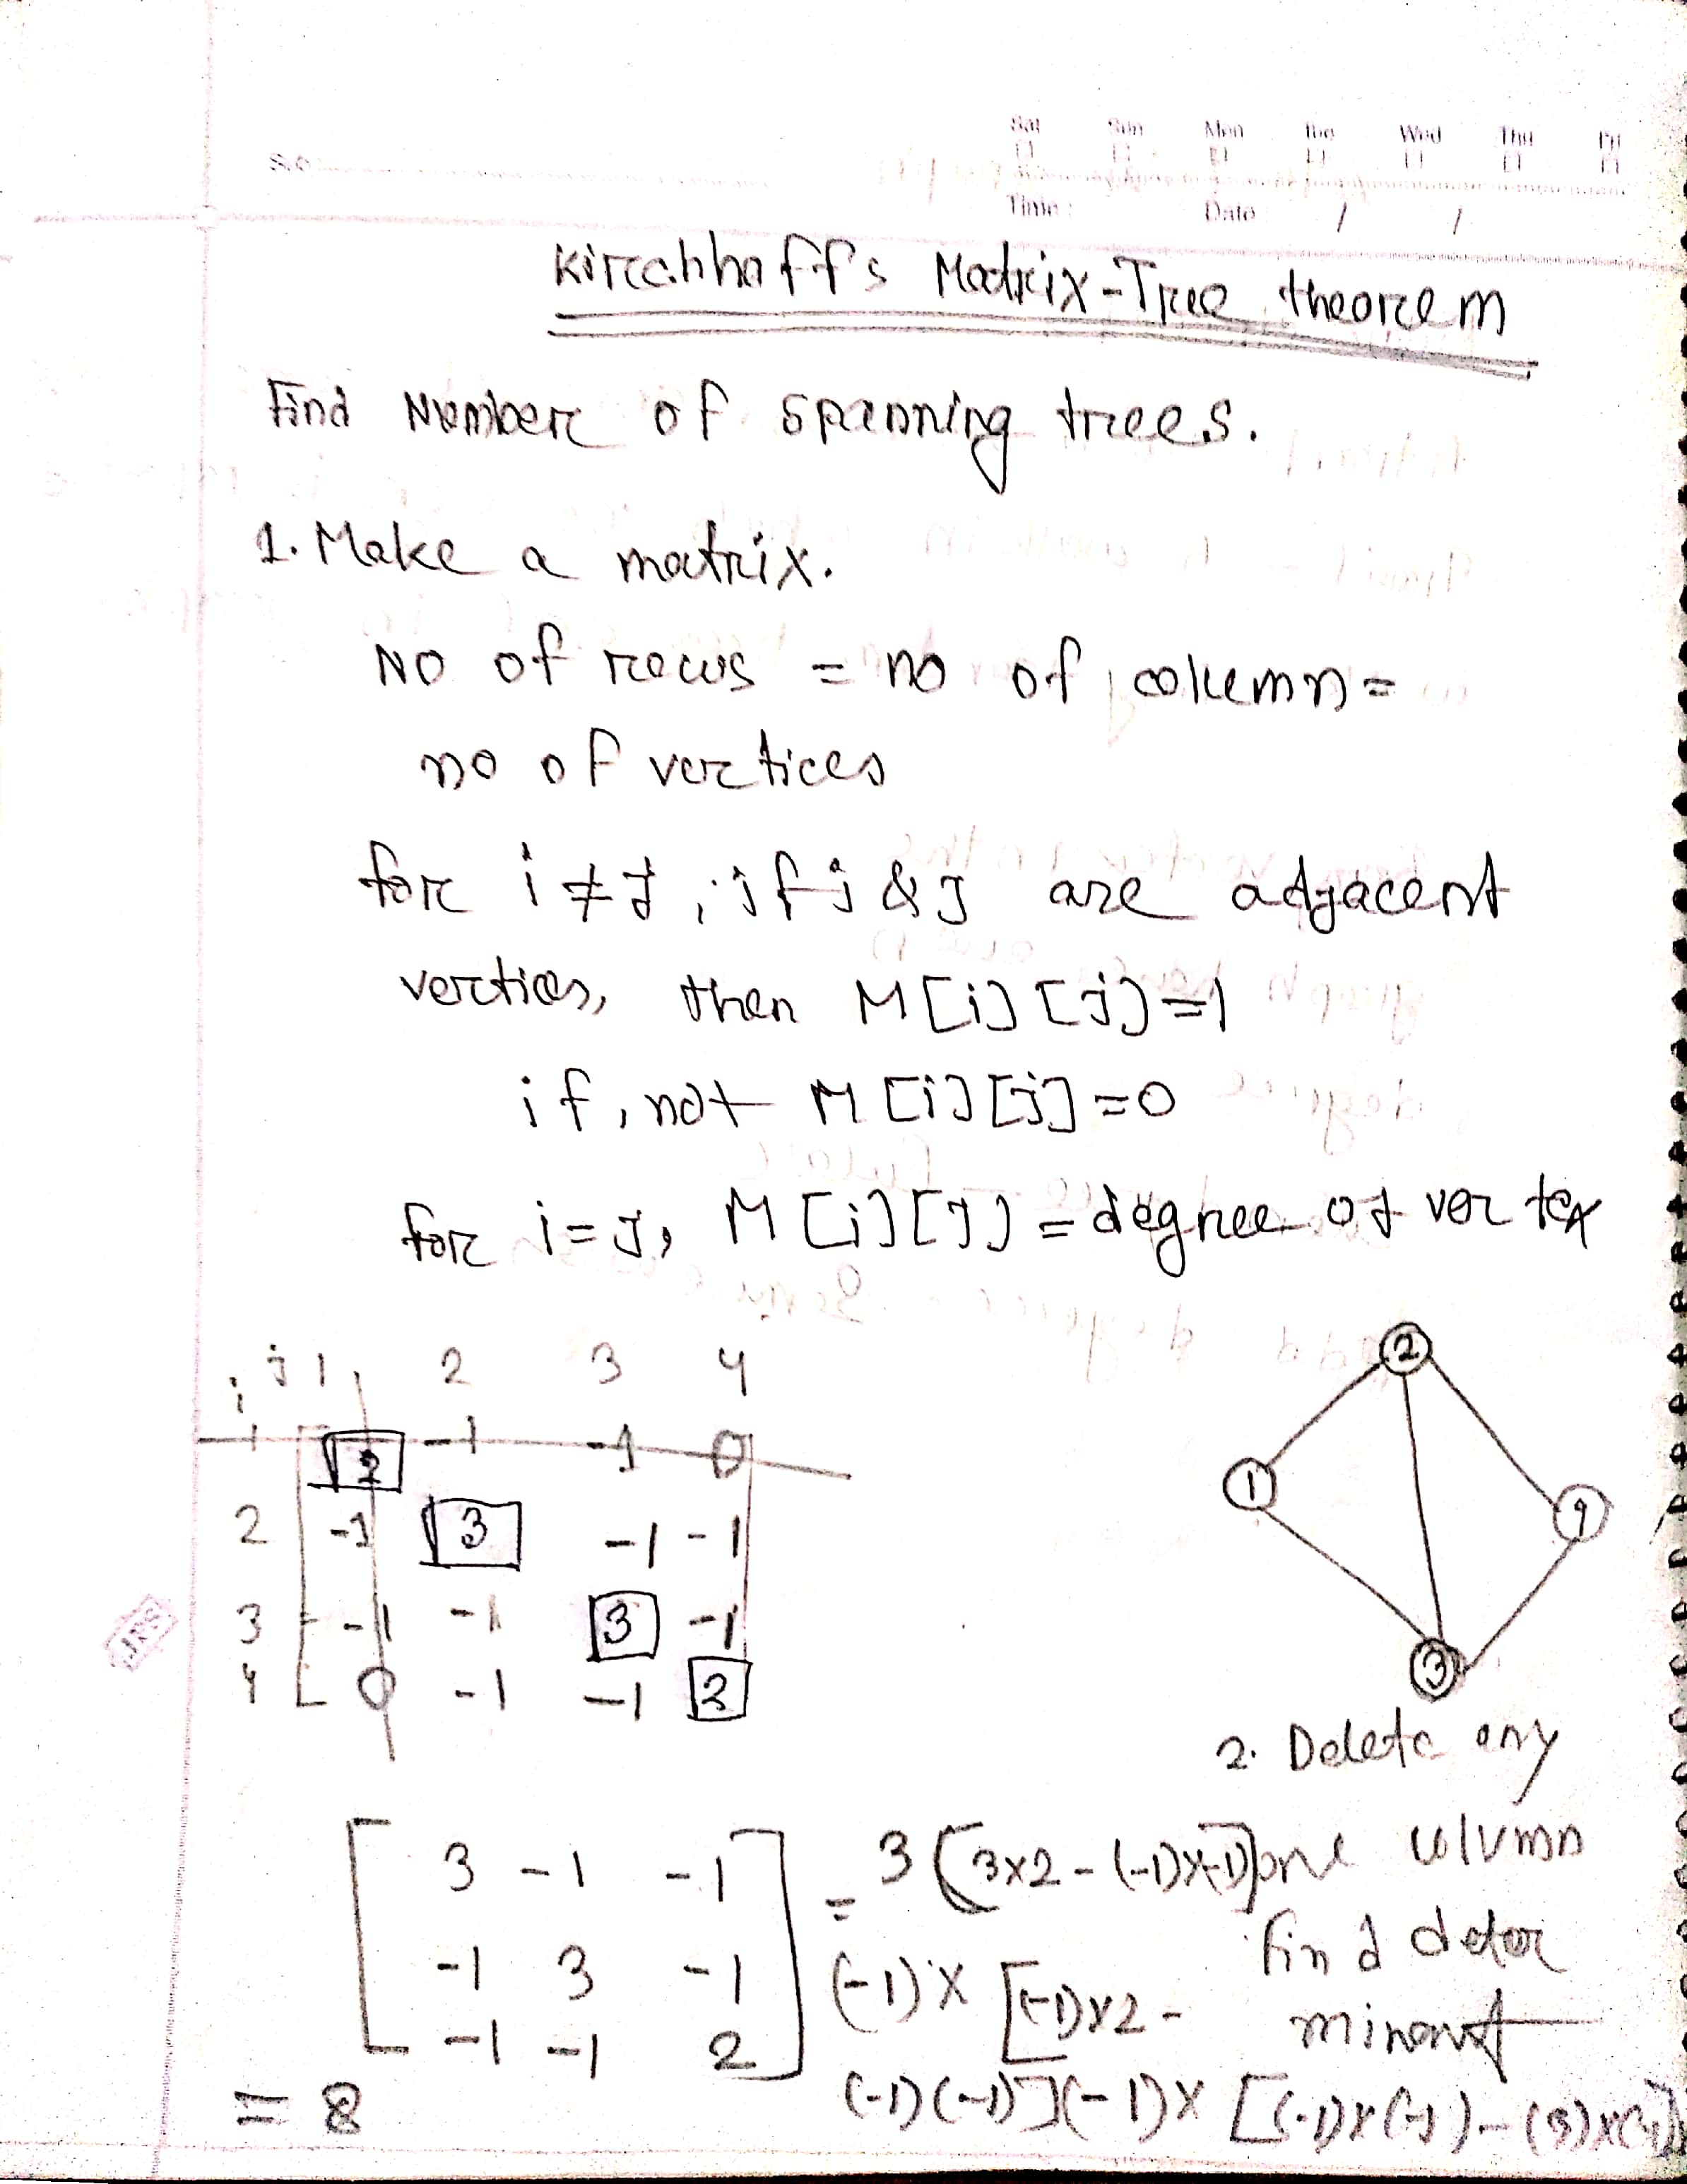 Sat Sun Mon Tue Wed Thu Fri
Time : Date / /
Kirchhoff's Matrix-Tree theorem
Find Number of spanning trees.
1. Make a matrix.
NO of rows = no of column =
no of vertices
for i ≠ j, if i & j are adjacent
vertices, then M[i][j]=1
if, not M[i][j]=0
for i=j, M[i][j] = degree of vertex
i j 1 2 3 4
1 2 -1 -1 0
2 -1 3 -1 -1
3 -1 -1 3 -1
4 0 -1 -1 2
2
1
4
3
2. Delete any
one column
find deter
minant
3 -1 -1 = 3 [3x2 - (-1)x(-1)]
-1 3 -1 (-1) x [(-1)x2 -
-1 -1 2 (-1)(-1)] (-1) x [(-1)x(-1) - (3)x(-1)]
= 8